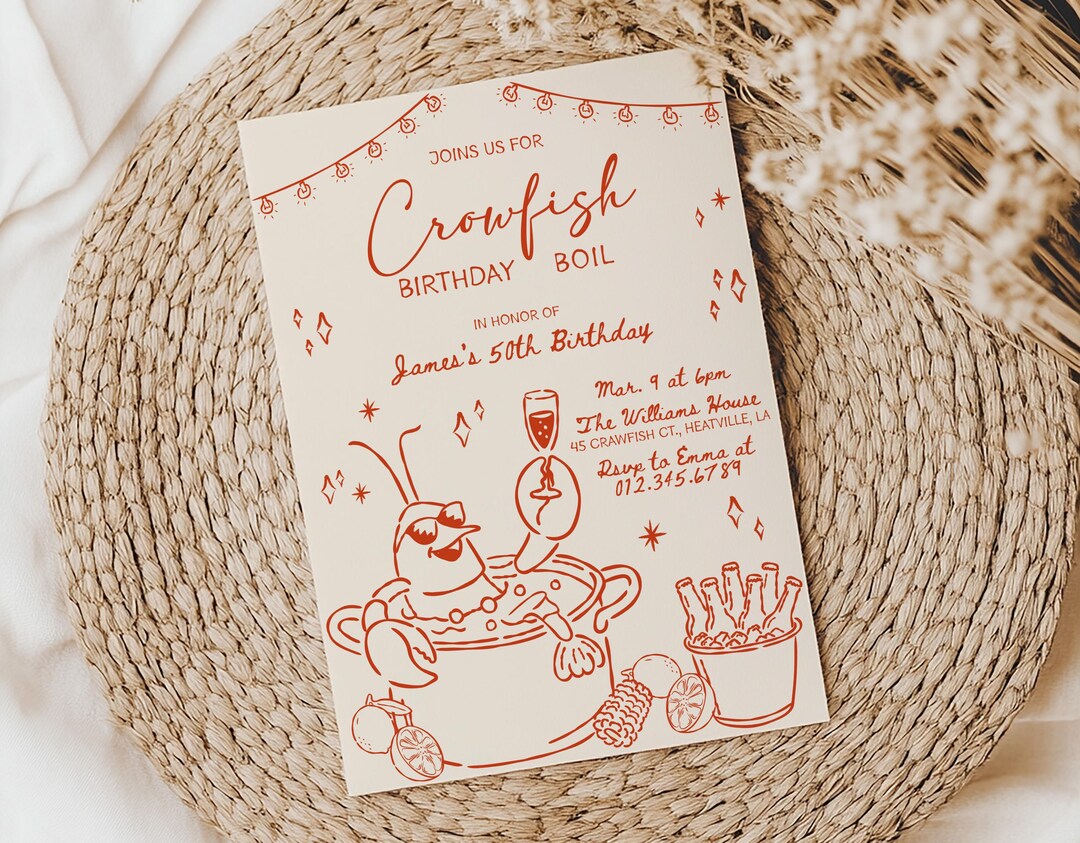 JOINS US FOR
Crowfish
BIRTHDAY BOIL
IN HONOR OF
James's 50th Birthday
Mar. 9 at 6pm
The Williams House
45 CRAWFISH CT., HEATVILLE, LA
Rsvp to Emma at
012.345.6789